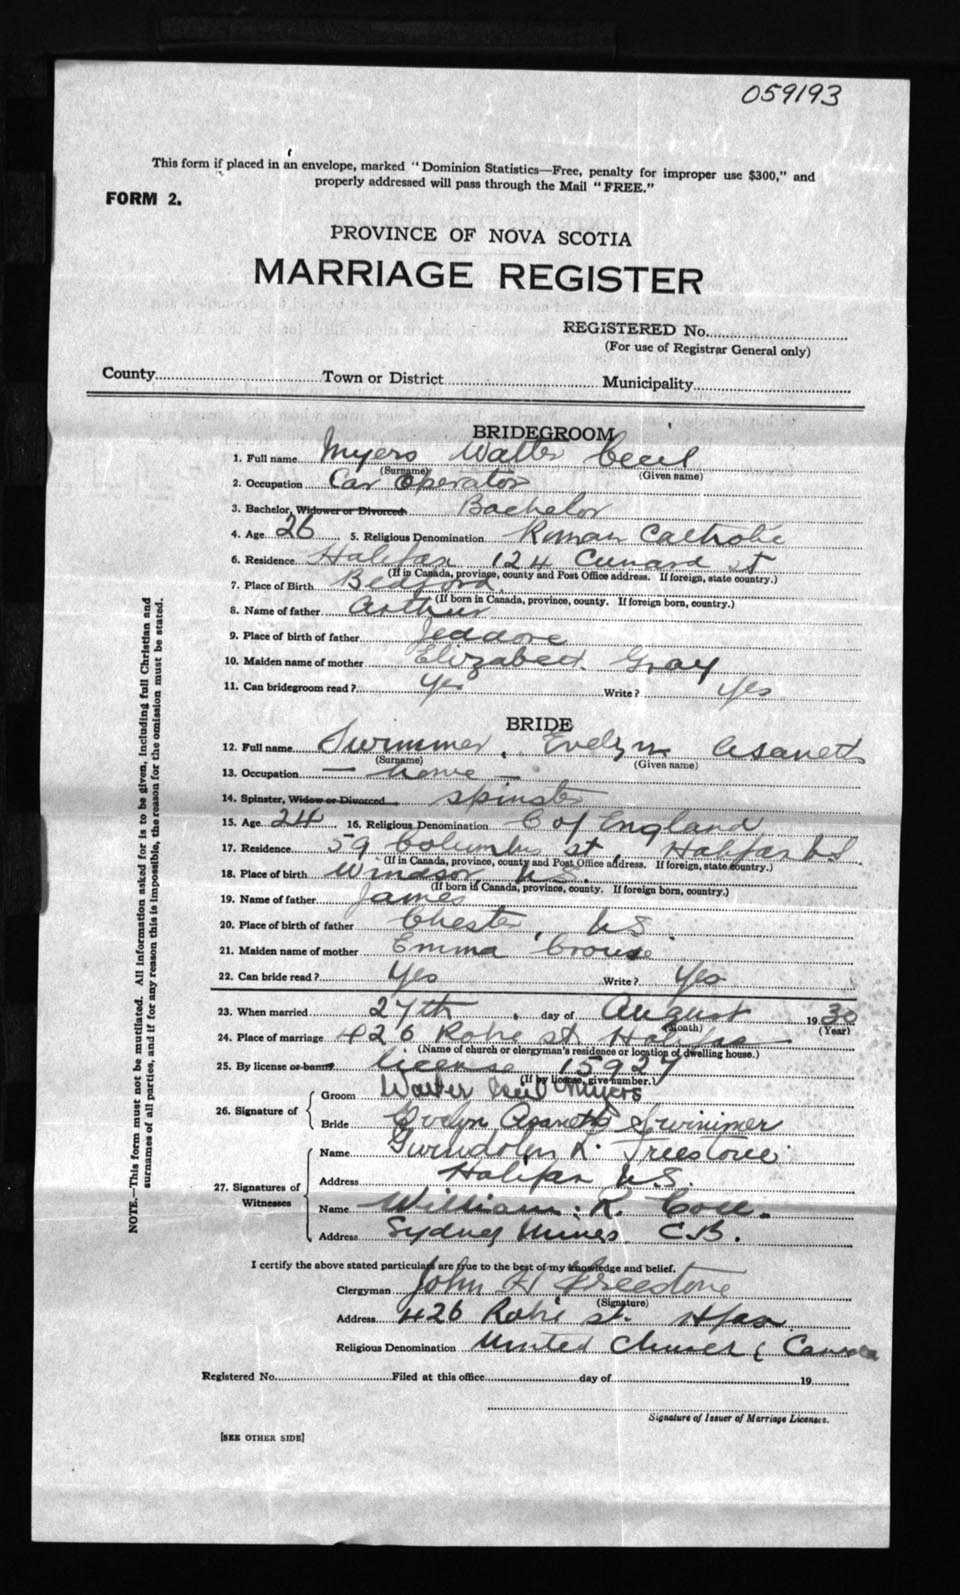 059193
This form if placed in an envelope, marked "Dominion Statistics—Free, penalty for improper use $300," and
properly addressed will pass through the Mail "FREE."
FORM 2.
PROVINCE OF NOVA SCOTIA
MARRIAGE REGISTER
REGISTERED No.
(For use of Registrar General only)
County Town or District Municipality
BRIDEGROOM
1. Full name Myers Walter Cecil
(Surname) (Given name)
2. Occupation Car Operator
3. Bachelor, Widower or Divorced Bachelor
4. Age 26 5. Religious Denomination Roman Catholic
6. Residence Halifax 124 Cunard St
(If in Canada, province, county and Post Office address. If foreign, state country.)
7. Place of Birth Bedford
(If born in Canada, province, county. If foreign born, country.)
8. Name of father Arthur
9. Place of birth of father Jeddore
10. Maiden name of mother Elizabeth Gray
11. Can bridegroom read? Yes Write? Yes
BRIDE
12. Full name Swimmer, Evelyn Asaneth
(Surname) (Given name)
13. Occupation — home —
14. Spinster, Widow or Divorced spinster
15. Age 24 16. Religious Denomination C of England
17. Residence 59 Columbus St, Halifax N.S.
(If in Canada, province, county and Post Office address. If foreign, state country.)
18. Place of birth Windsor N.S.
(If born in Canada, province, county. If foreign born, country.)
19. Name of father James
20. Place of birth of father Chester, N.S.
21. Maiden name of mother Emma Crouse
22. Can bride read? Yes Write? Yes
23. When married 27th day of August 1930
(Month) (Year)
24. Place of marriage 426 Robie St, Halifax
(Name of church or clergyman's residence or location of dwelling house.)
25. By license or banns license 15927
(If by license, give number.)
26. Signature of Groom Walter Cecil Myers
Bride Evelyn Asaneth Swimmer
27. Signatures of Witnesses Name Gwendolyn L. Freestone
Address Halifax N.S.
Name William R.
Address Sydney Mines C.B.
I certify the above stated particulars are true to the best of my knowledge and belief.
Clergyman John H Freestone
(Signature)
Address 426 Robie St. Hfax
Religious Denomination United Church of Canada
Registered No. Filed at this office day of 19
Signature of Issuer of Marriage Licenses.
[SEE OTHER SIDE]
NOTE.—This form must not be mutilated. All information asked for is to be given, including full Christian and
surnames of all parties, and if for any reason this is impossible, the reason for the omission must be stated.